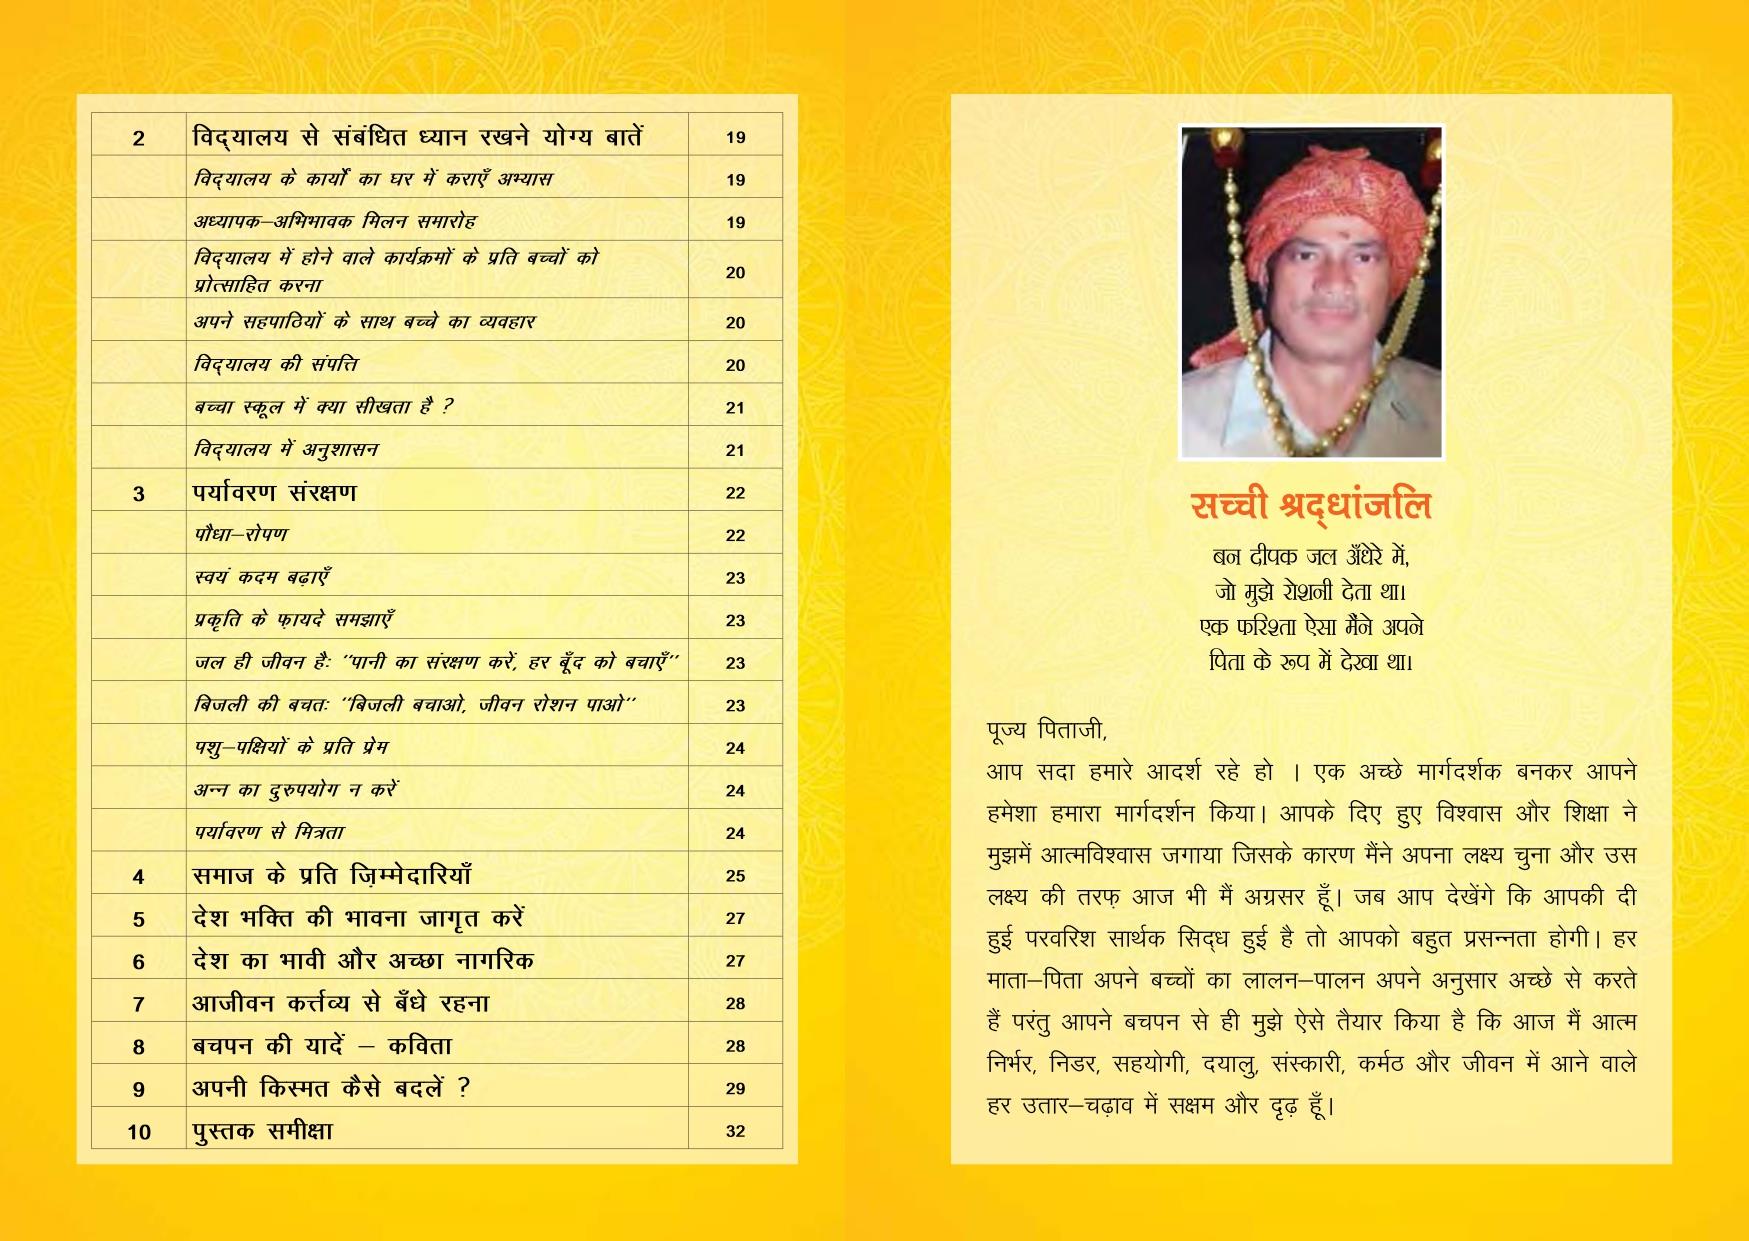 2 विद्यालय से संबंधित ध्यान रखने योग्य बातें 19
विद्यालय के कार्यों का घर में कराएँ अभ्यास 19
अध्यापक–अभिभावक मिलन समारोह 19
विद्यालय में होने वाले कार्यक्रमों के प्रति बच्चों को
प्रोत्साहित करना 20
अपने सहपाठियों के साथ बच्चे का व्यवहार 20
विद्यालय की संपत्ति 20
बच्चा स्कूल में क्या सीखता है ? 21
विद्यालय में अनुशासन 21
3 पर्यावरण संरक्षण 22
पौधा–रोपण 22
स्वयं कदम बढ़ाएँ 23
प्रकृति के फ़ायदे समझाएँ 23
जल ही जीवन हैः ‘‘पानी का संरक्षण करें, हर बूँद को बचाएँ’’ 23
बिजली की बचतः ‘‘बिजली बचाओ, जीवन रोशन पाओ’’ 23
पशु–पक्षियों के प्रति प्रेम 24
अन्न का दुरुपयोग न करें 24
पर्यावरण से मित्रता 24
4 समाज के प्रति ज़िम्मेदारियाँ 25
5 देश भक्ति की भावना जागृत करें 27
6 देश का भावी और अच्छा नागरिक 27
7 आजीवन कर्त्तव्य से बँधे रहना 28
8 बचपन की यादें – कविता 28
9 अपनी किस्मत कैसे बदलें ? 29
10 पुस्तक समीक्षा 32
सच्ची श्रद्धांजलि
बन दीपक जल अँधेरे में,
जो मुझे रोशनी देता था।
एक फरिश्ता ऐसा मैंने अपने
पिता के रूप में देखा था।
पूज्य पिताजी,
आप सदा हमारे आदर्श रहे हो । एक अच्छे मार्गदर्शक बनकर आपने
हमेशा हमारा मार्गदर्शन किया। आपके दिए हुए विश्वास और शिक्षा ने
मुझमें आत्मविश्वास जगाया जिसके कारण मैंने अपना लक्ष्य चुना और उस
लक्ष्य की तरफ़ आज भी मैं अग्रसर हूँ। जब आप देखेंगे कि आपकी दी
हुई परवरिश सार्थक सिद्ध हुई है तो आपको बहुत प्रसन्नता होगी। हर
माता–पिता अपने बच्चों का लालन–पालन अपने अनुसार अच्छे से करते
हैं परंतु आपने बचपन से ही मुझे ऐसे तैयार किया है कि आज मैं आत्म
निर्भर, निडर, सहयोगी, दयालु, संस्कारी, कर्मठ और जीवन में आने वाले
हर उतार–चढ़ाव में सक्षम और दृढ़ हूँ।